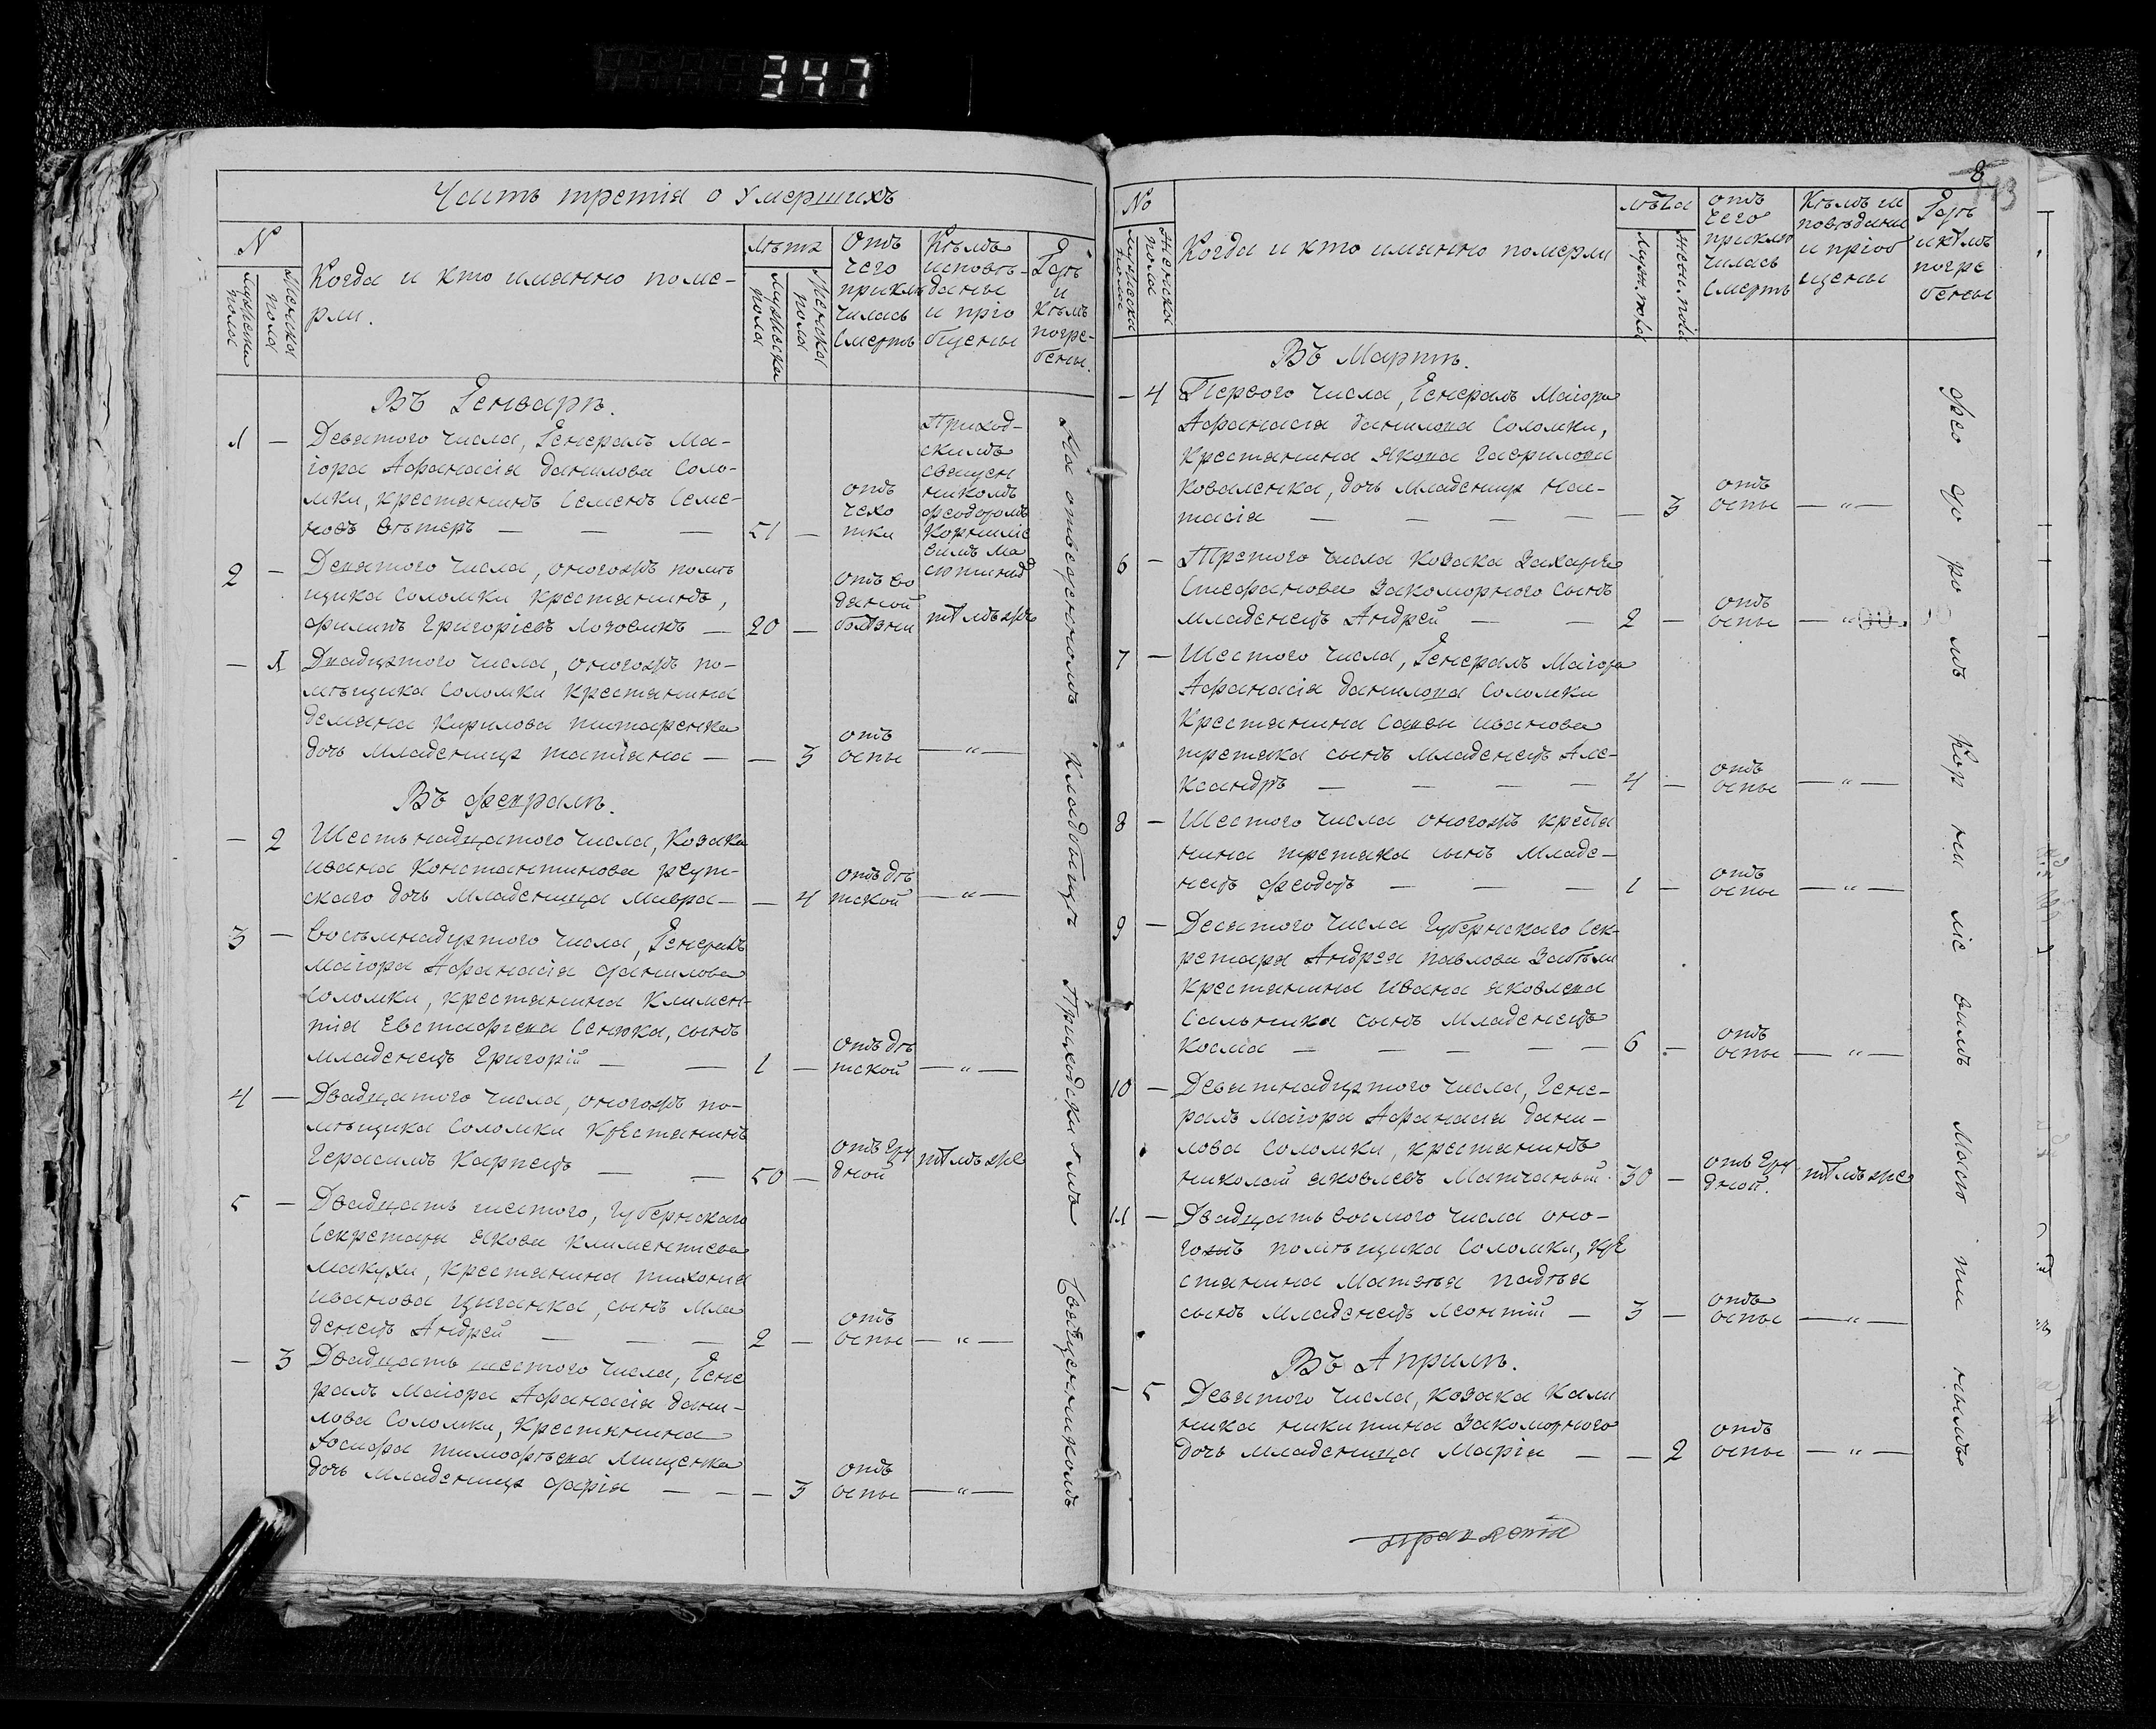 347
Часть третія о умершихъ
N
Мужеска пола
Женска пола
Когда и кто имянно поме-
рли.
Лѣта
Мужеска пола
Женска пола
Отъ
чего
приклю
чилась
смерть
Кѣмъ
исповѣ-
даны
и прїо
бщены
Гдѣ
и
Кѣмъ
погре-
бены.
Въ Генварѣ.
1 — Девятого числа, Генералъ Ма-
іора Афанасія данилова Соло-
мки, крестянинъ Семенъ Семе-
новъ Вѣтеръ — — — 51 —
отъ
чехо
тки
Приход-
скимъ
священ
никомъ
феодоромъ
Корниліе
вимъ Ма
2 — Девятого числа, оногожъ помѣ
щика Соломки крестянинъ,
филипъ Григоріевъ Лозовикъ — 20 —
отъ во
дяной
болѣзни
тѣмъ же
— 1 Двадцятого числа, оногожъ по-
мѣщика Соломки крестянина
демяна Кирилова титаренка
дочь младеница татіана — — 3
отъ
оспы
— „ —
Въ февралѣ.
— 2 Шестьнадцатого числа, Козака
ивана Константинова реут-
скаго дочь младеница Мавра — — 4
отъ дѣ
тской
— „ —
3 — восьмнадцятого числа, Генералъ
маіора Афанасія данилова
Соломки, крестянина Климен-
тія Евстафіева Сенюка, сынъ
младенецъ Григорій — — 1 —
отъ дѣ
тской
— „ —
4 — Двадцатого числа, оногожъ по-
мѣщика Соломки Крестянинъ
Герасимъ Карпецъ — — 50 —
отъ гру
дной
тѣмъ же
5 — Двадцать шестого, Губернскаго
Секретаря якова климентіева
макухи, крестянина тихона
иванова Циганка, сынъ мла
денецъ Андрей — — — 2 —
отъ
оспы
— „ —
— 3 Двадцать шестого числа, Гене
ралъ Маіора Афанасія дани-
лова Соломки, Крестянина
Іосифа тимофѣева Мищенка
дочь младеница дарія — — — 3
отъ
оспы
— „ —
На отведенномъ Кладбищѣ Приходскимъ Священникомъ
8
No
Мужеска пола
Женска пола
Когда и кто имянно померли
лѣта
Муж. пола
Жен. пола
отъ
чего
приклю
чилась
смерть
Кѣмъ и
повѣдани
и пріоб
щены
Гдѣ
и кѣмъ
погре
бены
Въ Мартѣ.
— 4 Первого числа, Генералъ Маіора
Афанасія данилова Соломки,
крестянина якова Гаврилова
Коваленка, дочь младеница нас-
тасія — — — — — 3
отъ
оспы
— „ —
6 — Третого числа Козака Захарія
Стефанова Закоморного сынъ
младенецъ Андрей — — 2 —
отъ
оспы
— „ —
7 — Шестого числа, Генералъ Маіора
Афанасія данилова Соломки
Крестянина Савы иванова
третяка сынъ младенецъ Але-
ксандръ — — — — 4 —
отъ
оспы
— „ —
8 — Шестого числа оногожъ крестя
нина третяка сынъ младе-
нецъ феодотъ — — — 1 —
отъ
оспы
— „ —
9 — Десятого числа Губернскаго Сек-
ретаря Андрея павлова Забѣли
крестянина ивана яковлева
Сальника сынъ младенецъ
Косма — — — — — 6 —
отъ
оспы
— „ —
10 — Девятнадцятого числа, Гене-
ралъ Маіора Афанасія дани-
лова Соломки, крестянинъ
николай яковлевъ Матчаный 30 —
отъ гру
дной.
тѣмъ же
11 — Двадцать восмого числа оно-
гожъ помѣщика Соломки, кре
стянина Матвѣя падѣя
сынъ младенецъ Леонтій — 3 —
отъ
оспы
— „ —
Въ Априлѣ.
— 5 Девятого числа, козака Кали
ника никитина Закоморного
дочь младеница Марія — — 2
отъ
оспы
— „ —
фео до ро мъ Кор ни ліе вимъ